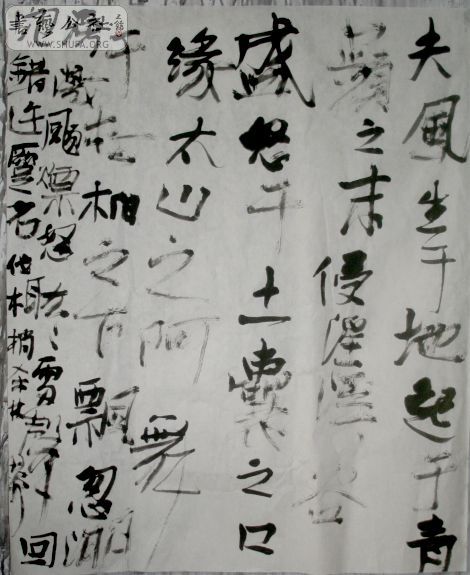 書藝公社
WWW.SHUFA.ORG
夫風生于地起于青
蘋之末侵淫溪谷
盛怒于土囊之口
緣太山之阿舞
於松柏之下飄忽淜
滂激颺熛怒耾〻雷聲回
錯迕蹶石伐木梢杀林莽